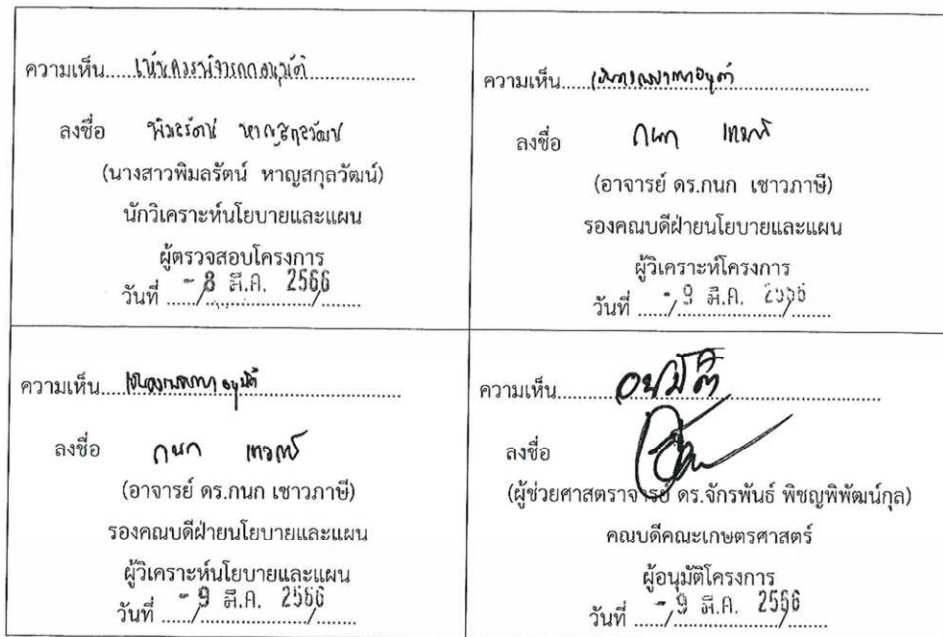 ความเห็น.....เห็นควรพิจารณาอนุมัติ
ลงชื่อ พิมลรัตน์ หาญสกุลวัฒน์
(นางสาวพิมลรัตน์ หาญสกุลวัฒน์)
นักวิเคราะห์นโยบายและแผน
ผู้ตรวจสอบโครงการ
วันที่ - 8 มี.ค. 2566
ความเห็น.....
ลงชื่อ กนก
(อาจารย์ ดร.กนก เชาวภาษี)
รองคณบดีฝ่ายนโยบายและแผน
ผู้วิเคราะห์โครงการ
วันที่ - 9 มี.ค. 2566
ความเห็น..... อนุมัติ
ลงชื่อ กนก
(อาจารย์ ดร.กนก เชาวภาษี)
รองคณบดีฝ่ายนโยบายและแผน
ผู้วิเคราะห์นโยบายและแผน
วันที่ - 9 มี.ค. 2566
ความเห็น.....อนุมัติ
ลงชื่อ
(ผู้ช่วยศาสตราจารย์ ดร.จักรพันธ์ พิชญพิพัฒน์กุล)
คณบดีคณะเกษตรศาสตร์
ผู้อนุมัติโครงการ
วันที่ - 9 มี.ค. 2566